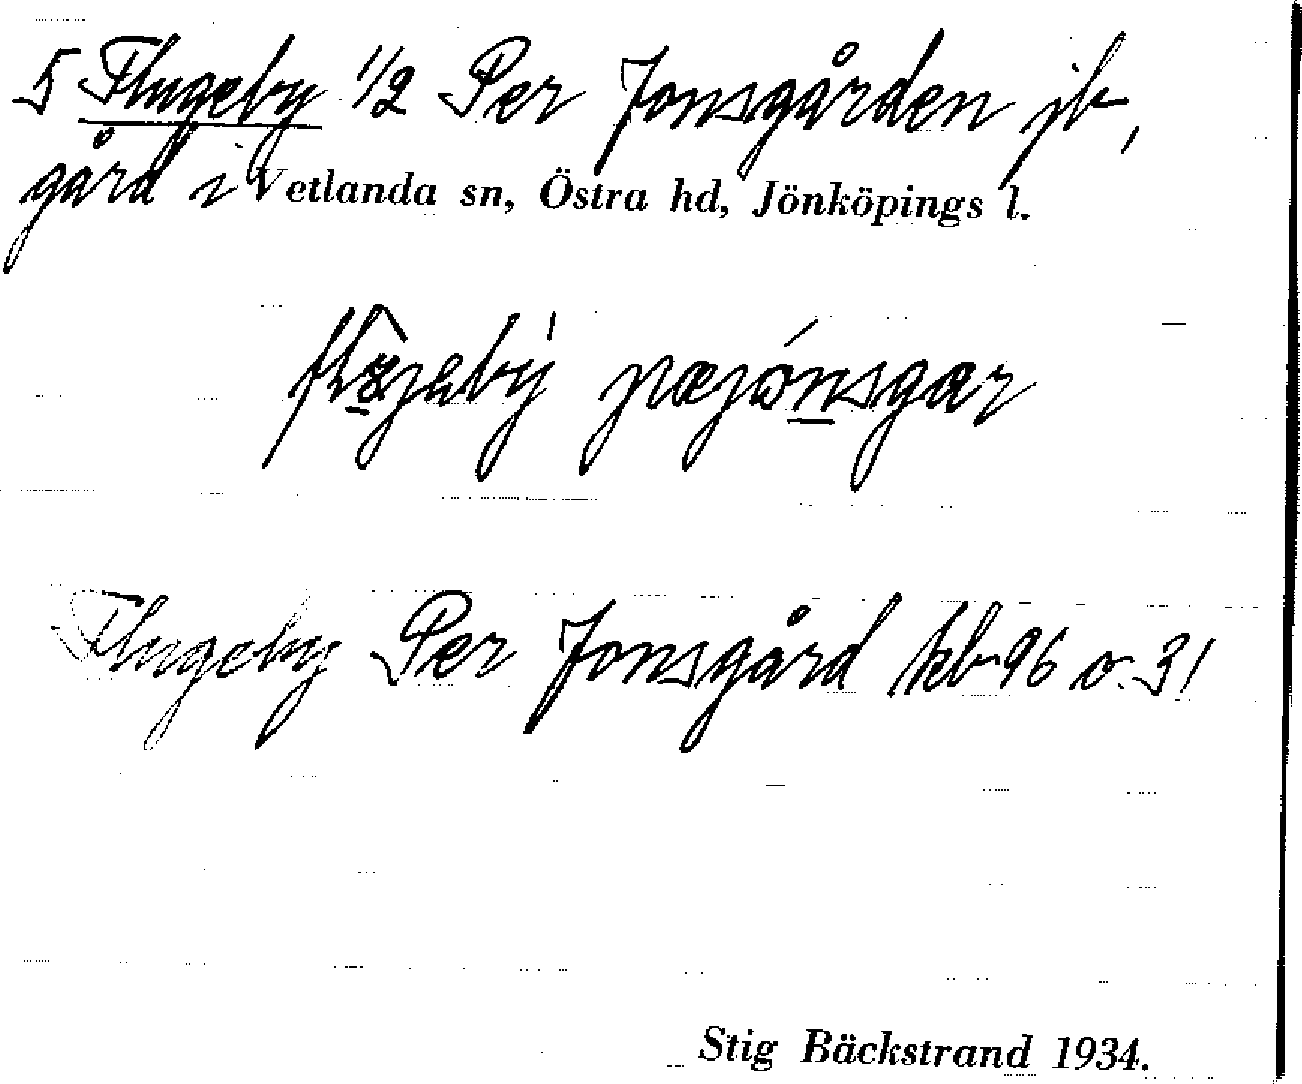 5 Flugeby 1/2 Per Jonsgården jb,
gård i Vetlanda sn, Östra hd, Jönköpings l.
Flugeby Per Jonsgård kb 96 o. 31
Stig Bäckstrand 1934.